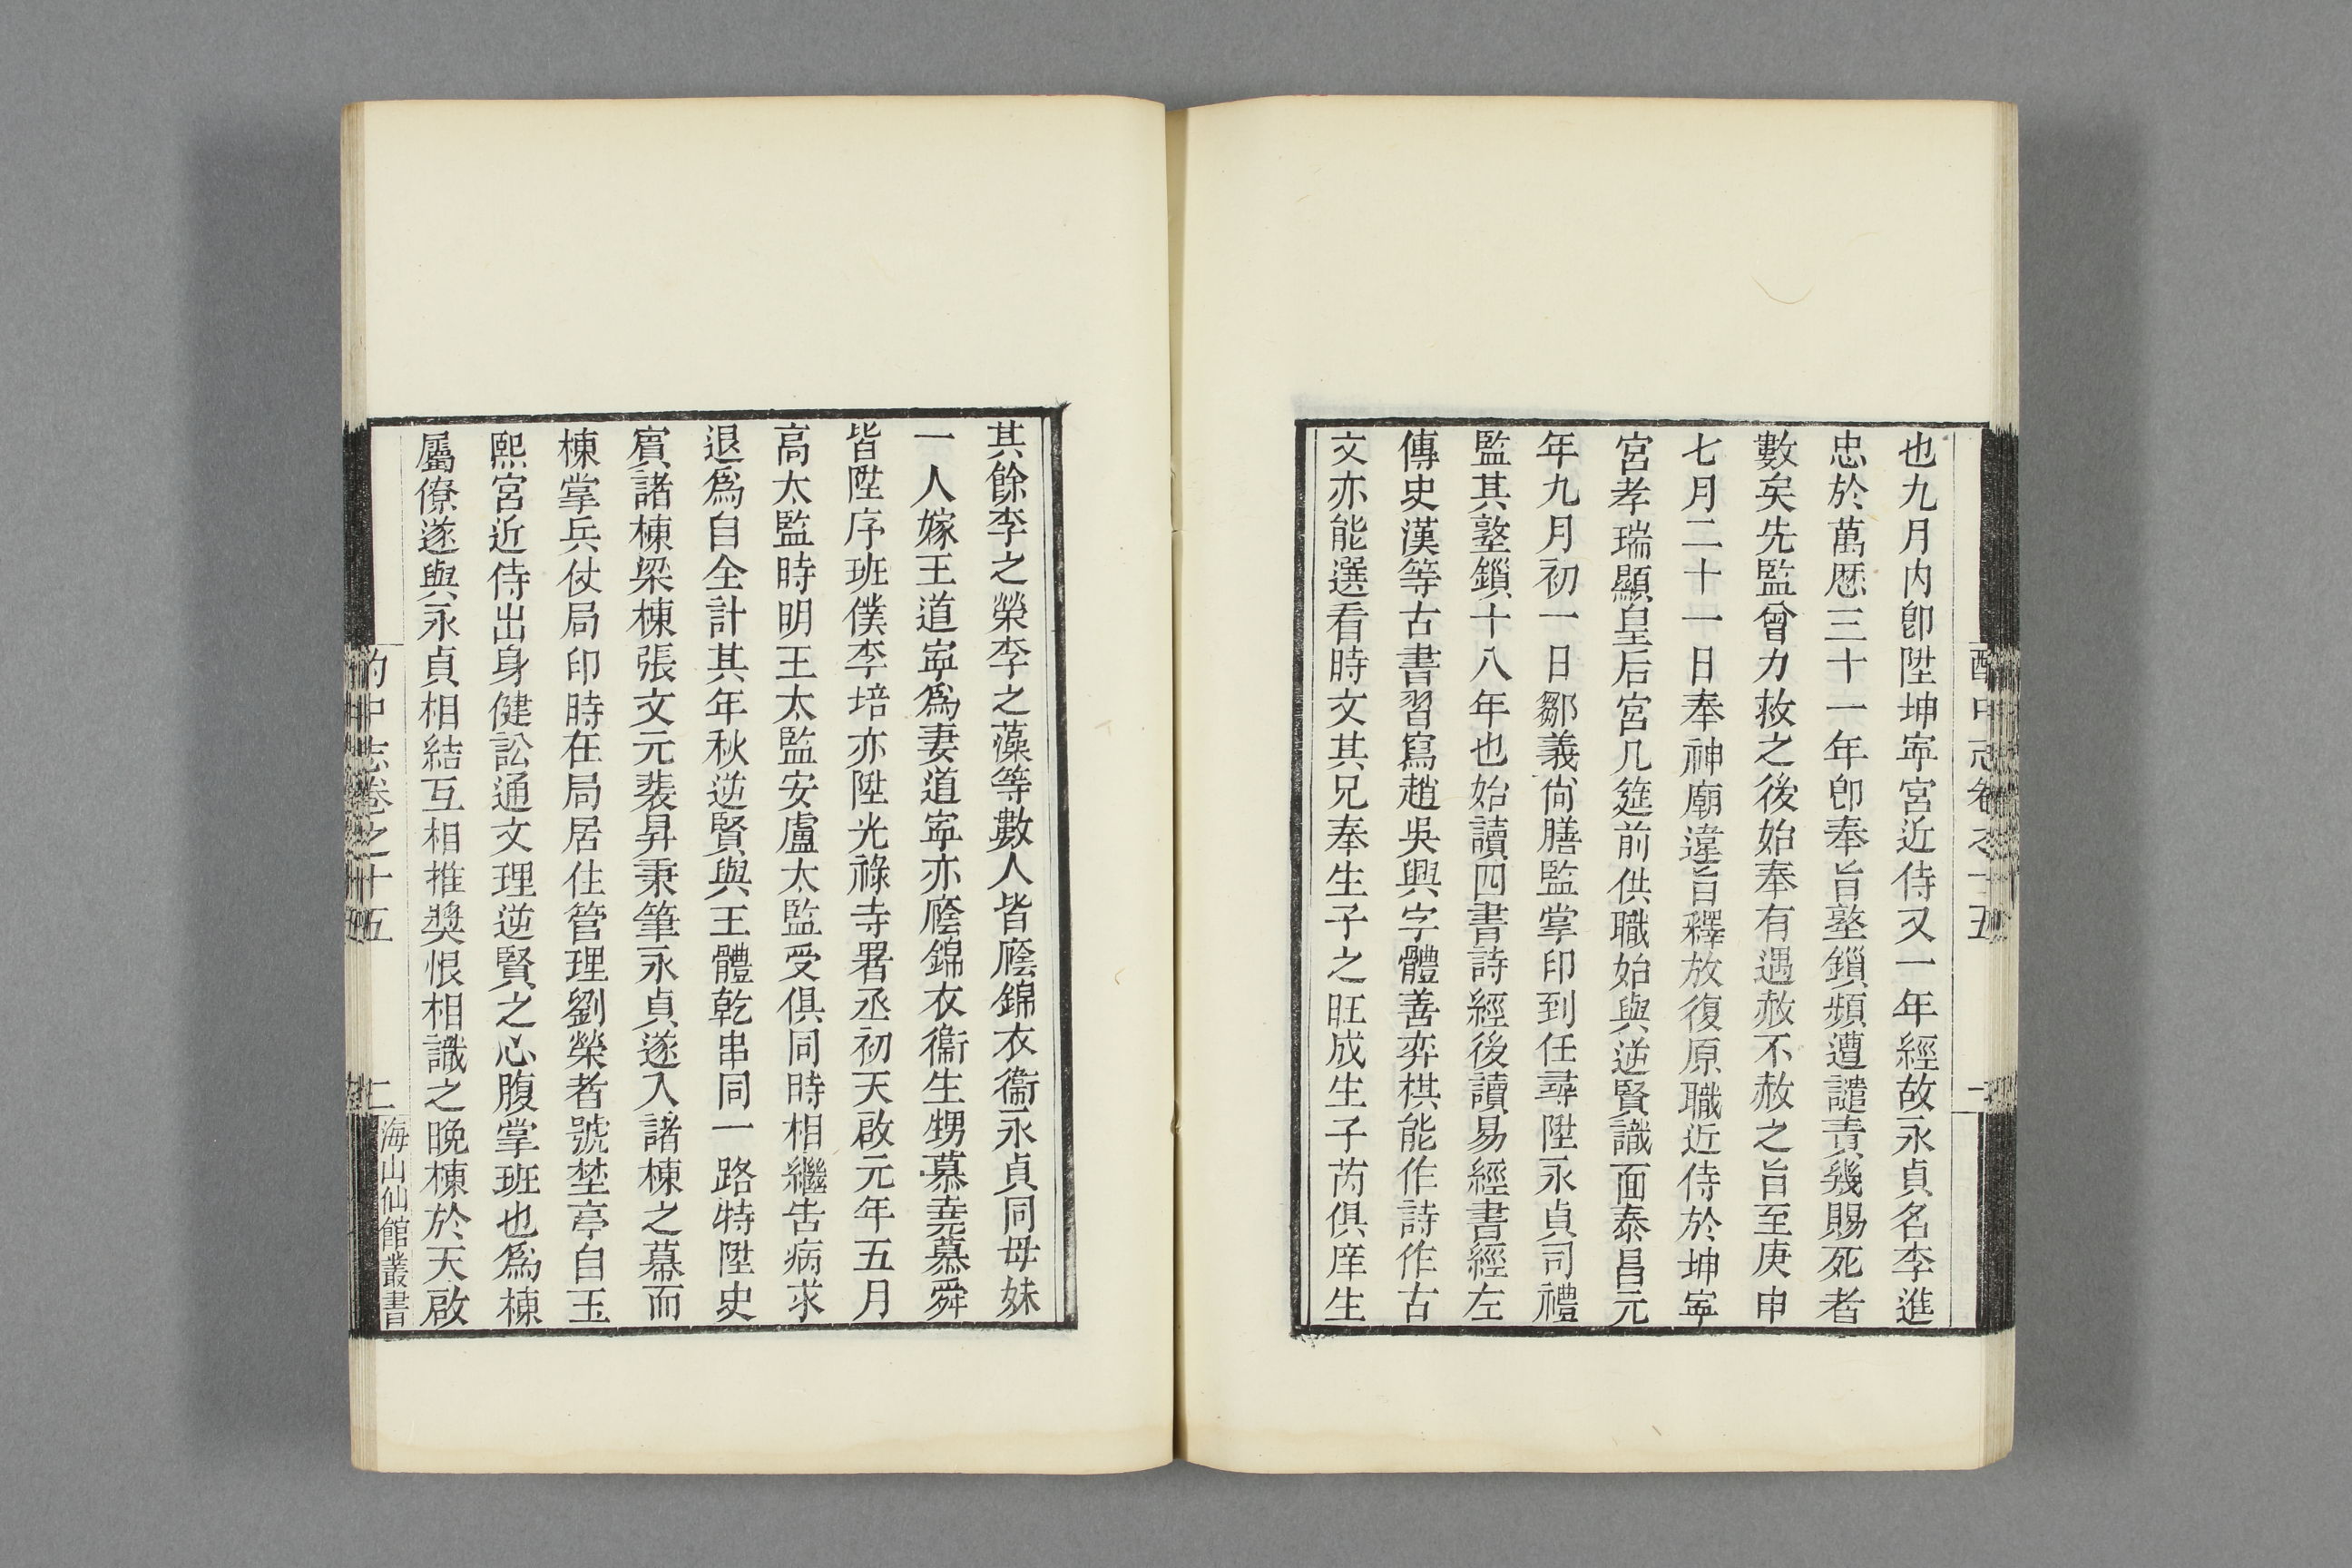 也九月内卽陞坤寧宮近侍又一年經故永貞名李進
忠於萬厯三十一年卽奉旨墪鎻頻遭譴責幾賜死者
數矣先監曾力救之後始奉有遇赦不赦之旨至庚申
七月二十一日奉神廟違旨釋放復原職近侍於坤寧
宮孝瑞顯皇后宮几筵前供職始與逆賢識面泰昌元
年九月初一日鄒義尙膳監掌印到任尋陞永貞司禮
監其墪鎻十八年也始讀四書詩經後讀易經書經左
傳史漢等古書習寫趙吳興字體善弈棋能作詩作古
文亦能選看時文其兄奉生子之旺成生子芮俱庠生
其餘李之榮李之藻等數人皆廕錦衣衞永貞同母妹
一人嫁王道寧爲妻道寧亦廕錦衣衞生甥慕堯慕舜
皆陞序班僕李培亦陞光祿寺署丞初天啟元年五月
高太監時明王太監安盧太監受俱同時相繼告病求
退爲自全計其年秋逆賢與王體乾串同一路特陞史
賓諸棟梁棟張文元裴昇秉筆永貞遂入諸棟之幕而
棟掌兵仗局印時在局居住管理劉榮者號埜亭自玉
熙宮近侍出身健訟通文理逆賢之心腹掌班也爲棟
屬僚遂與永貞相結互相推奬恨相識之晩棟於天啟
酌中志卷之十五
二
海山仙館叢書